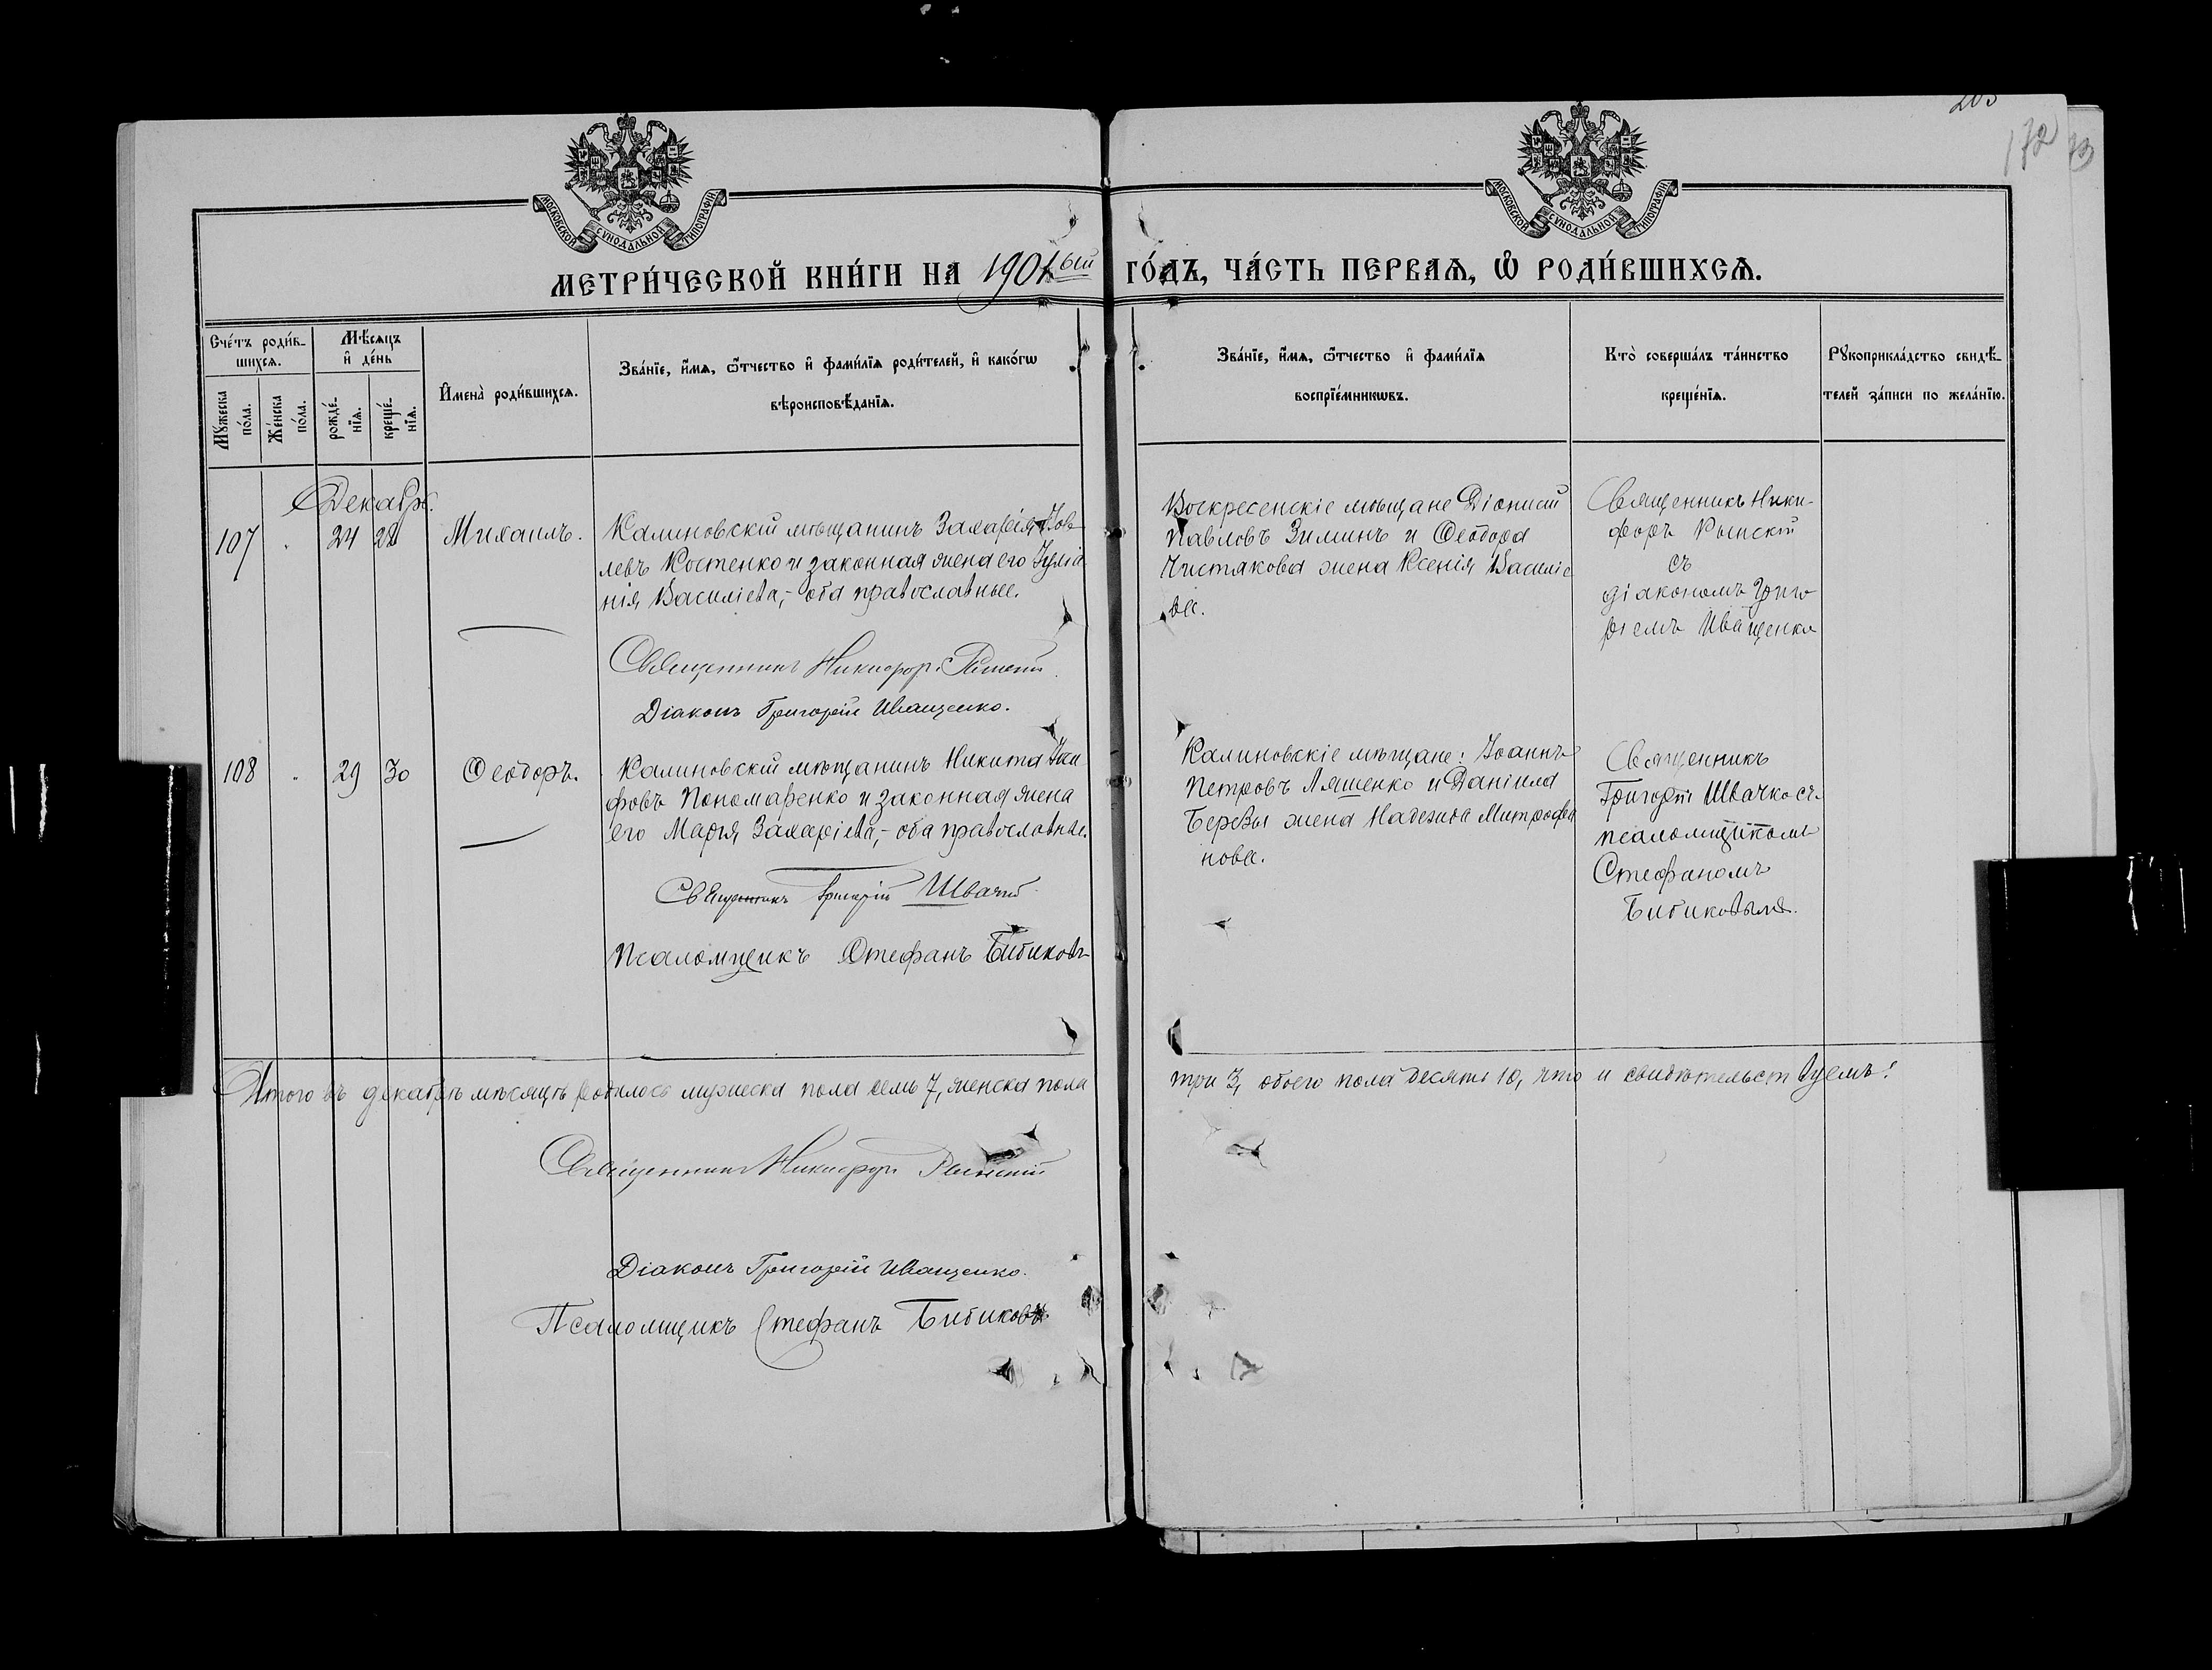 172
МОСКОВСКОЙ СѴНОДАЛЬНОЙ ТИПОГРАФІИ.
МОСКОВСКОЙ СѴНОДАЛЬНОЙ ТИПОГРАФІИ.
МЕТРИ́ЧЕСКОЙ КНИ́ГИ НА 1901ый ГО́ДЪ, ЧА́СТЬ ПЕРВАѦ, Ѡ҆ РОДИ́ВШИХСѦ.
Сче́тъ роди́в-
шихсѧ.
Мꙋ́жеска
по́ла.
Же́нска
по́ла.
Мѣ́сѧцъ
и҆ де́нь
рожде́-
нїѧ.
креще́-
нїѧ.
И҆мена̀ роди́вшихсѧ.
Зва́нїе, и҆́мѧ, ѻ҆́тчество и҆ фами́лїѧ роди́телей, и҆ како́гѡ
вѣроисповѣ́данїѧ.
Зва́нїе, и҆́мѧ, ѻ҆́тчество и҆ фами́лїѧ
воспрїе́мникѡвъ.
Кто̀ соверша́лъ та́инство
креще́нїѧ.
Рꙋкоприкла́дство свидѣ́-
телей за́писи по жела́нїю.
Декабрь.
107
24 28
Михаилъ.
Калиновскій мѣщанинъ Захарія Іов
левъ Костенко и законная жена его Іуліа
нія Василіева,- оба православные.
Священникъ Никифоръ Рынскій
Діаконъ Григорій Иващенко.
Воскресенскіе мѣщане Діонисій
Павловъ Зиминъ и Ѳеодора
Чистякова жена Ксенія Василіе
ва.
Священникъ Ники-
форъ Рынскій
съ
діакономъ Григо
ріемъ Иващенко
108
29 30
Ѳеодоръ.
Калиновскій мѣщанинъ Никита
фовъ Пономаренко и законная жена
его Марія Захаріева,- оба православные.
Священникъ Григорій Швачко
Псаломщикъ Стефанъ Бибиковъ
Калиновскіе мѣщане: Іоаннъ
Петровъ Ляшенко и Даніила
Березы жена Надежда Митрофа
нова.
Священникъ
Григорій Швачко съ
псаломщикомъ
Стефаномъ
Бибиковымъ.
Итого въ декабрѣ мѣсяцѣ родилось мужеска пола семь 7, женска пола три 3, обоего пола десять 10, что и свидѣтельствуемъ:
Священникъ Никифоръ Рынскій
Діаконъ Григорій Иващенко.
Псаломщикъ Стефанъ Бибиковъ